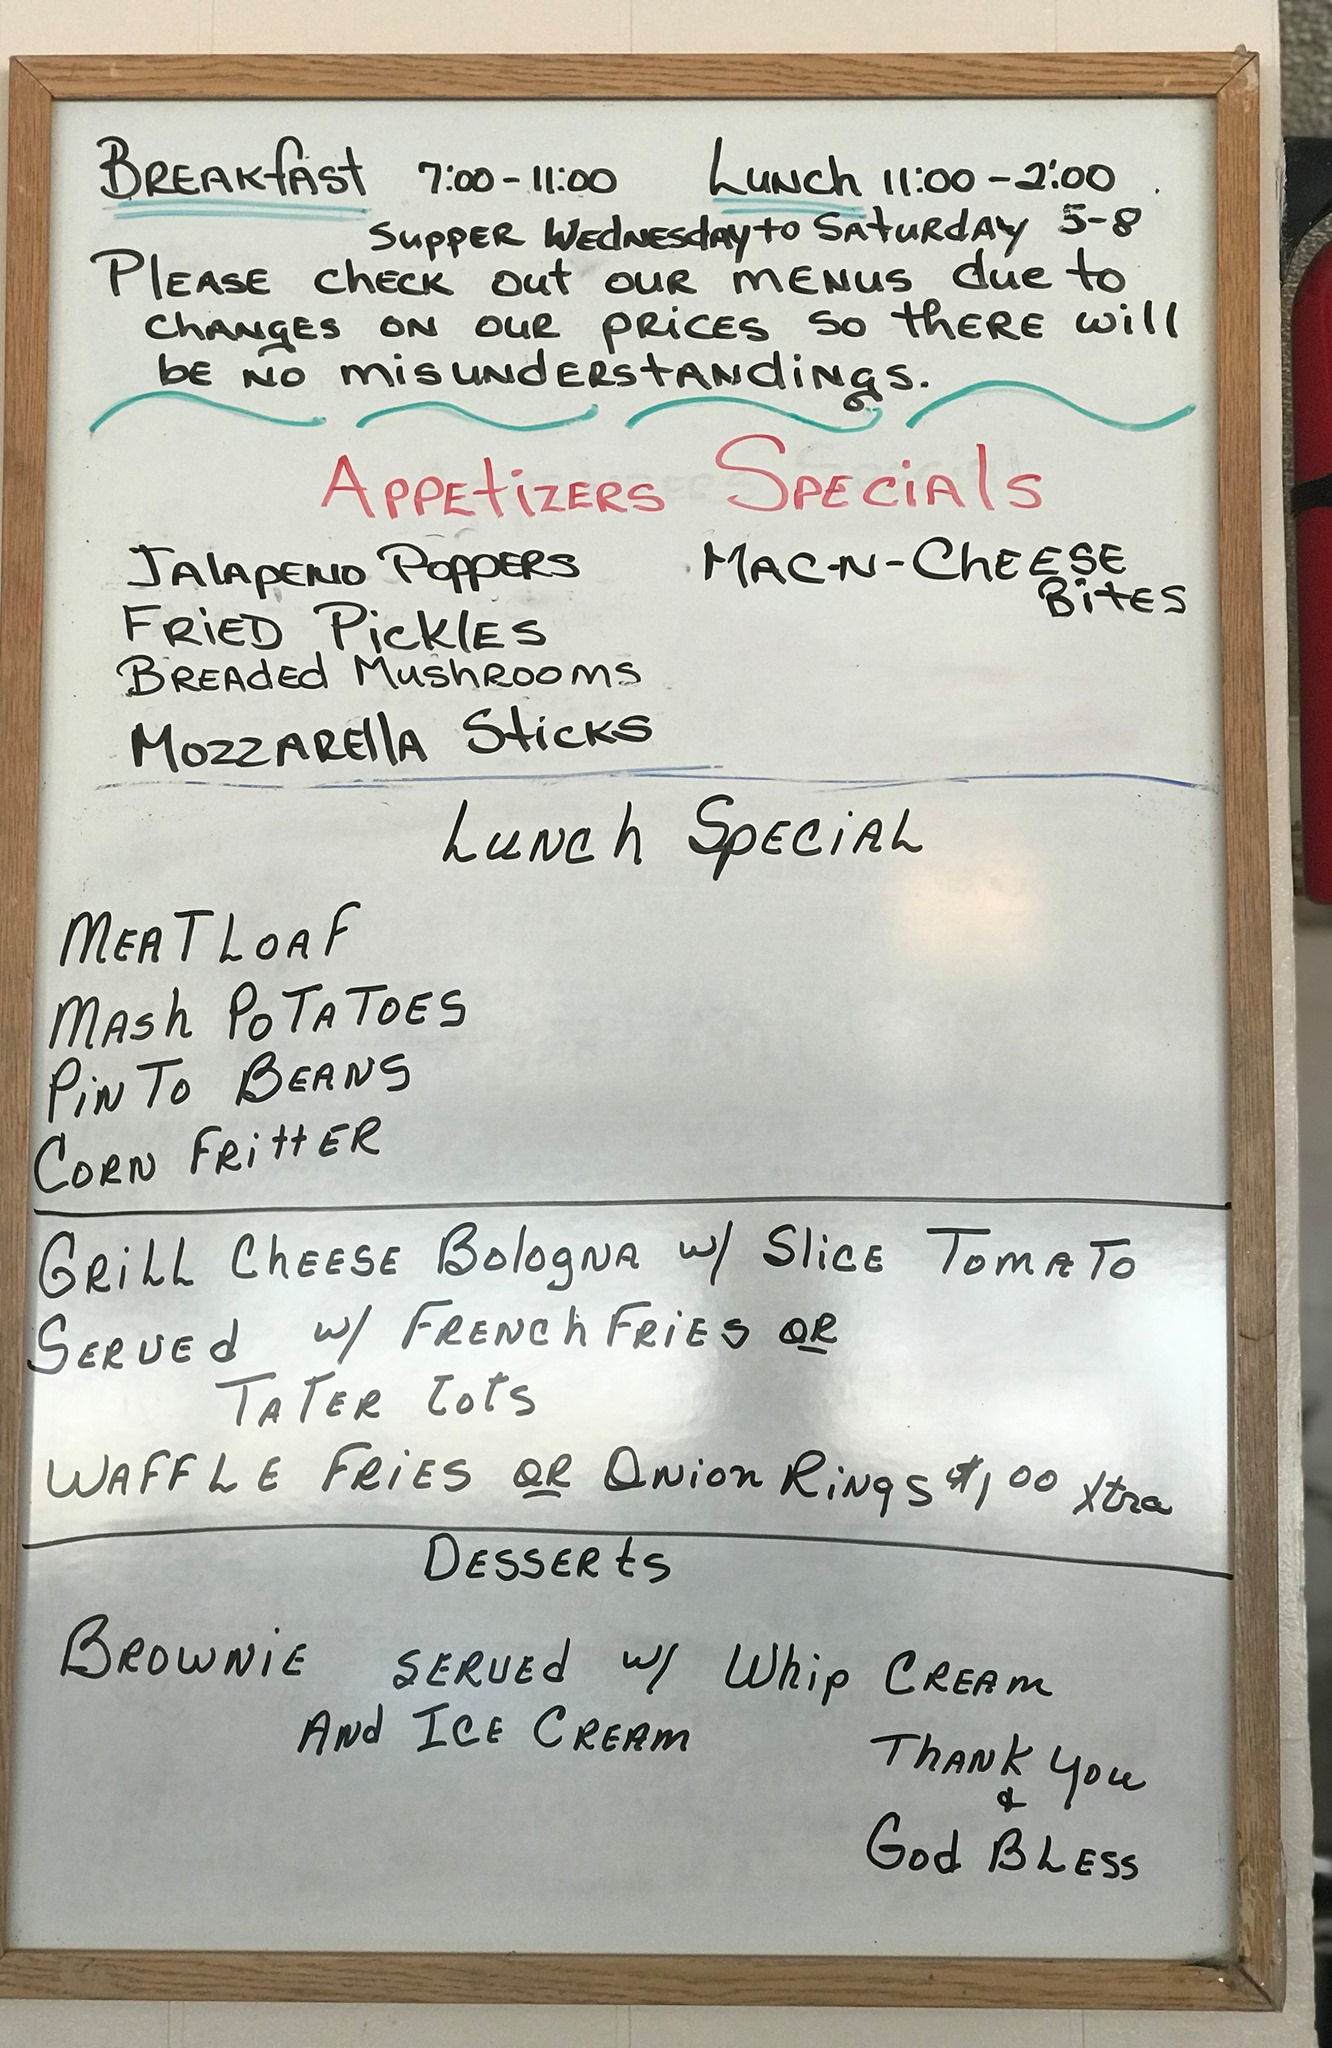 BREAKfAST 7:00-11:00 LUNCH 11:00-2:00
SUPPER WEDNESdAY to SATURDAY 5-8
PLEASE CHECK out OUR MENUS due to
CHANGES ON OUR PRICES SO tHERE will
bE NO misUNDERStANdiNgs.
APPEtiZERS SPECIAlS
JAlAPENO POPPERS MAC-N-ChEESE
FRiED PickLES BitES
BREAdEd MushROOMS
MOZZAREllA SticKS
LUNCh SPECiAL
MEATLOAF
MASh POTATOES
PiNTO BEANS
CORN FRittER
GRiLL ChEESE BologNA w/ SliCE TOMATO
SERVEd w/ FRENCh FRiES OR
TATER tots
WAFFLE FRiES OR ONioN RiNgS $1.00 Xtra
DESSERtS
BROWNiE SERVEd w/ Whip CREAM
ANd ICE CREAM
THANK YOU
&
God BLESS